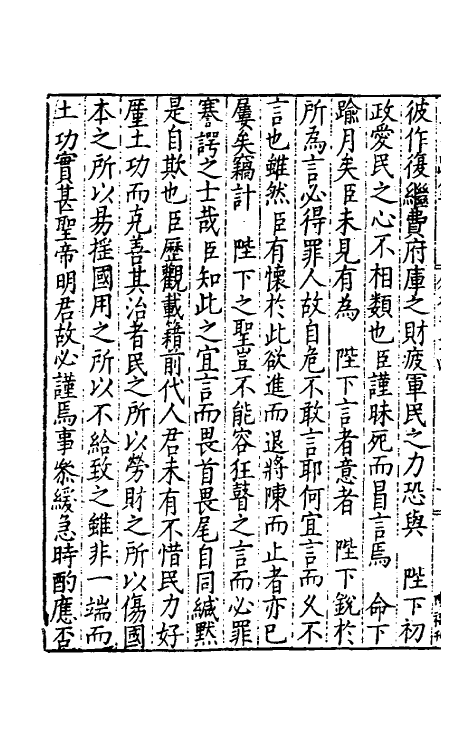 彼作復繼費府庫之財疲軍民之力恐與　陛下初
政愛民之心不相類也臣謹昧死而昌言焉　命下
踰月矣臣未見有為　陛下言者意者　陛下銳於
所為言必得罪人故自危不敢言耶何宜言而久不
言也雖然臣有懷於此欲進而退將陳而止者亦已
屢矣竊計　陛下之聖豈不能容狂瞽之言而必罪
蹇諤之士哉臣知此之宜言而畏首畏尾自同緘默
是自欺也臣歷觀載籍前代人君未有不惜民力好
厪土功而克善其治者民之所以勞財之所以傷國
本之所以易揺國用之所以不給致之雖非一端而
土功實甚聖帝明君故必謹焉事叅緩急時酌應否